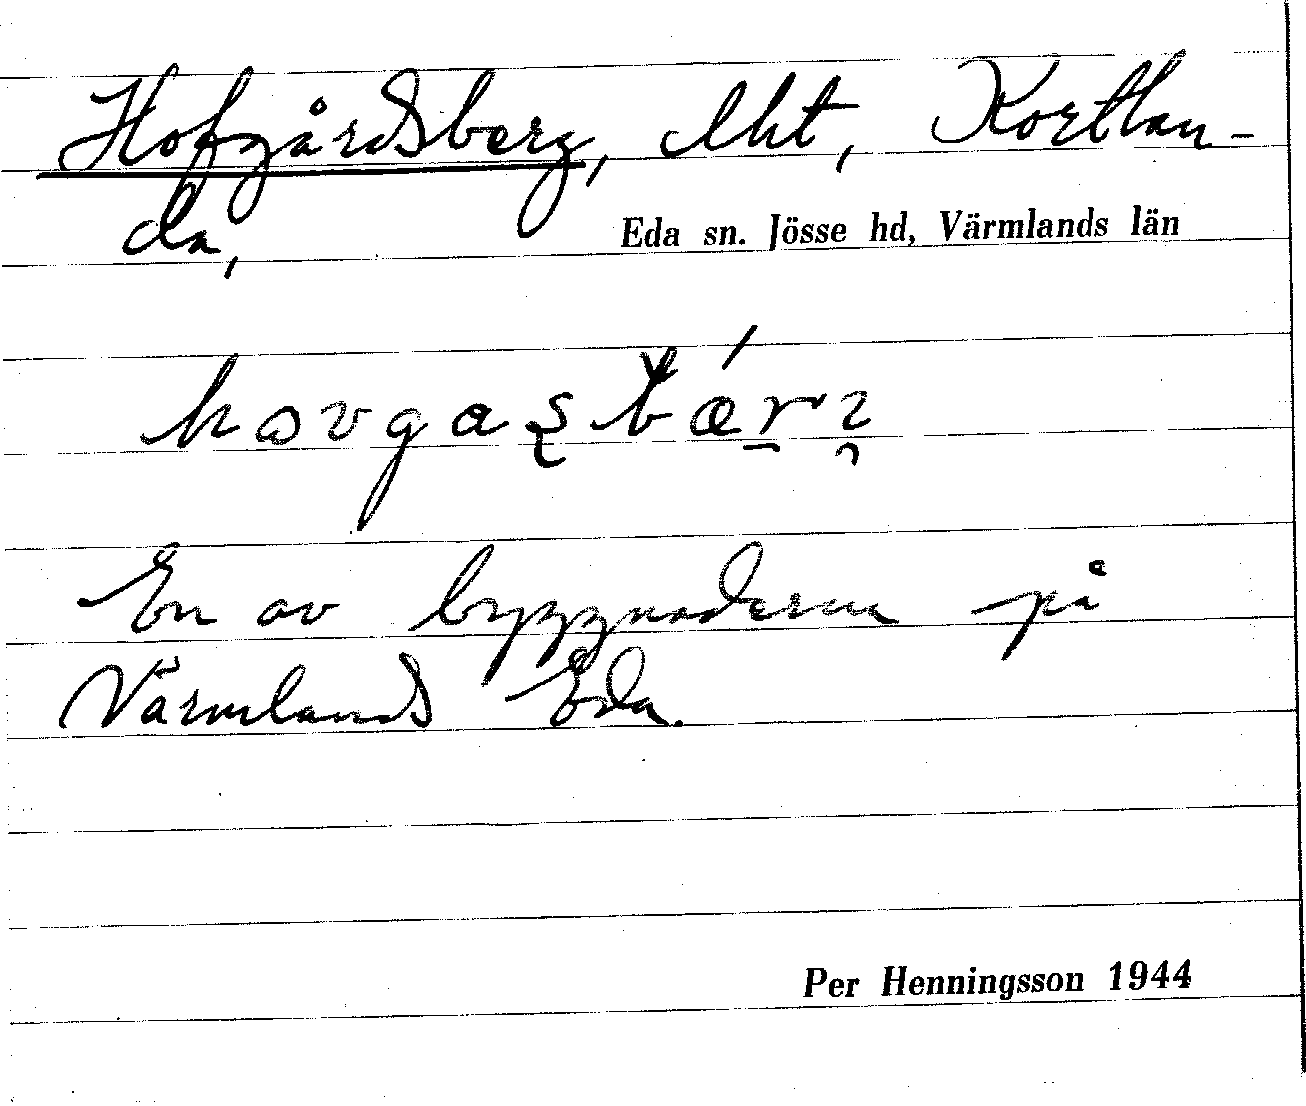 Hofgårdsberg, lht, Kortlan-
da, Eda sn. Jösse hd, Värmlands län
En av byggnaderna på
Värmlands Eda.
Per Henningsson 1944